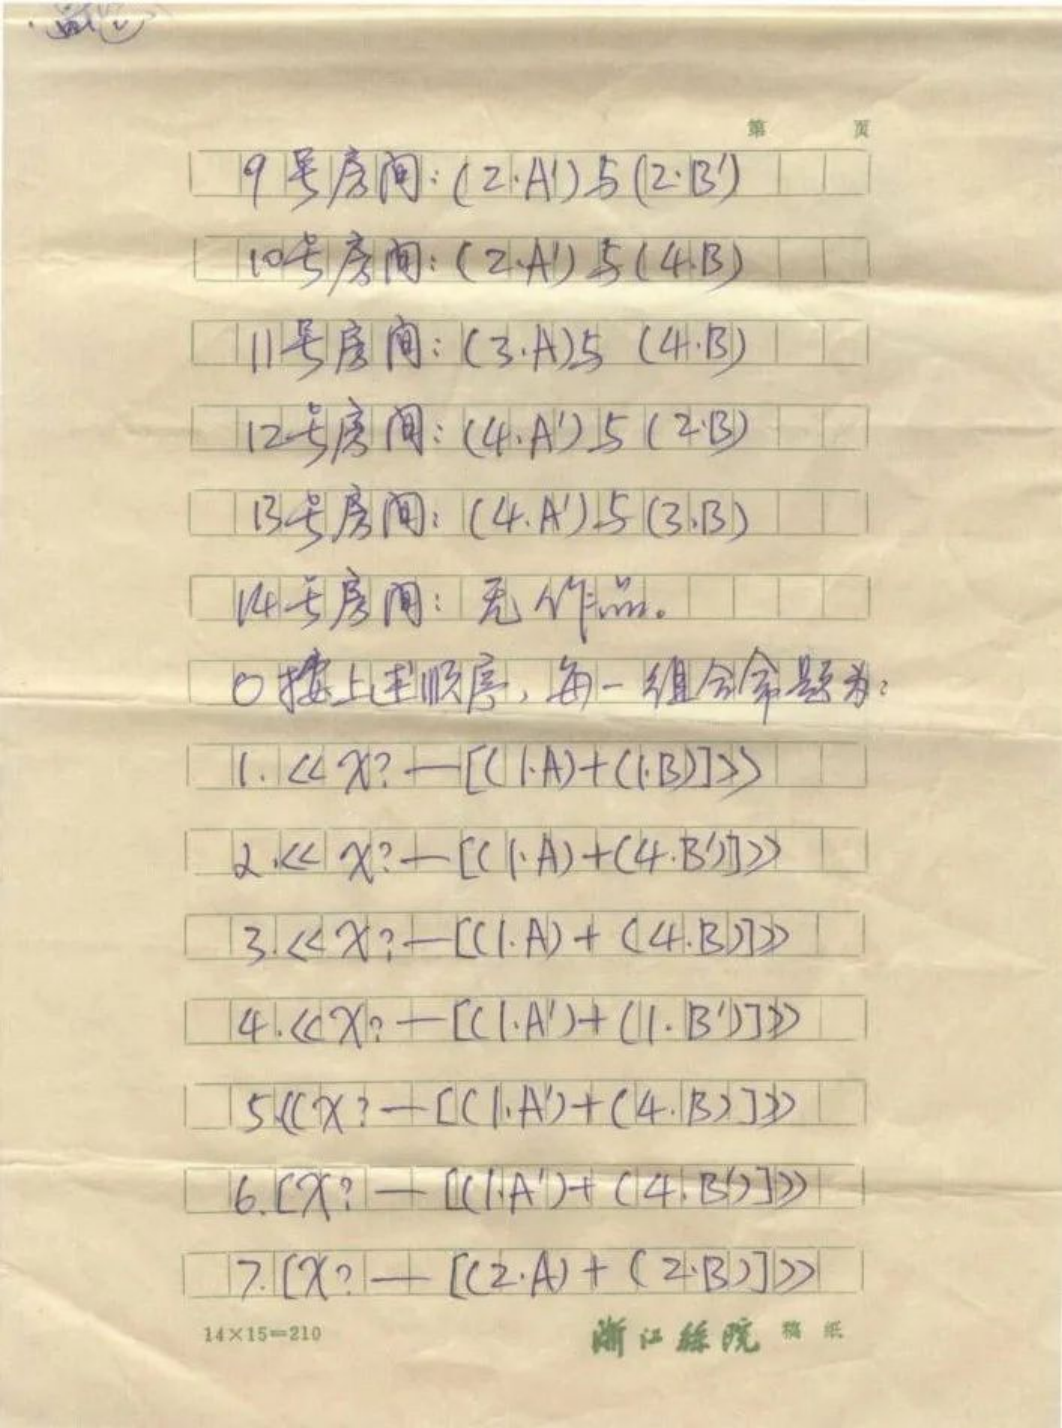 第 页
9号房间:(2·A')与(2·B')
10号房间:(2·A')与(4·B)
11号房间:(3·A)与(4·B)
12号房间:(4·A')与(2·B)
13号房间:(4·A')与(3·B)
14号房间:无作品。
○按上述顺序,每一组合命题为:
1.《X?—[(1·A)+(1·B)]》
2.《X?—[(1·A)+(4·B')]》
3.《X?—[(1·A)+(4·B)]》
4.《X?—[(1·A')+(1·B')]》
5《X?—[(1·A')+(4·B)]》
6.[X?—[(1·A')+(4·B')]》
7.[X?—[(2·A)+(2·B)]》
14×15=210 浙江丝院 稿纸